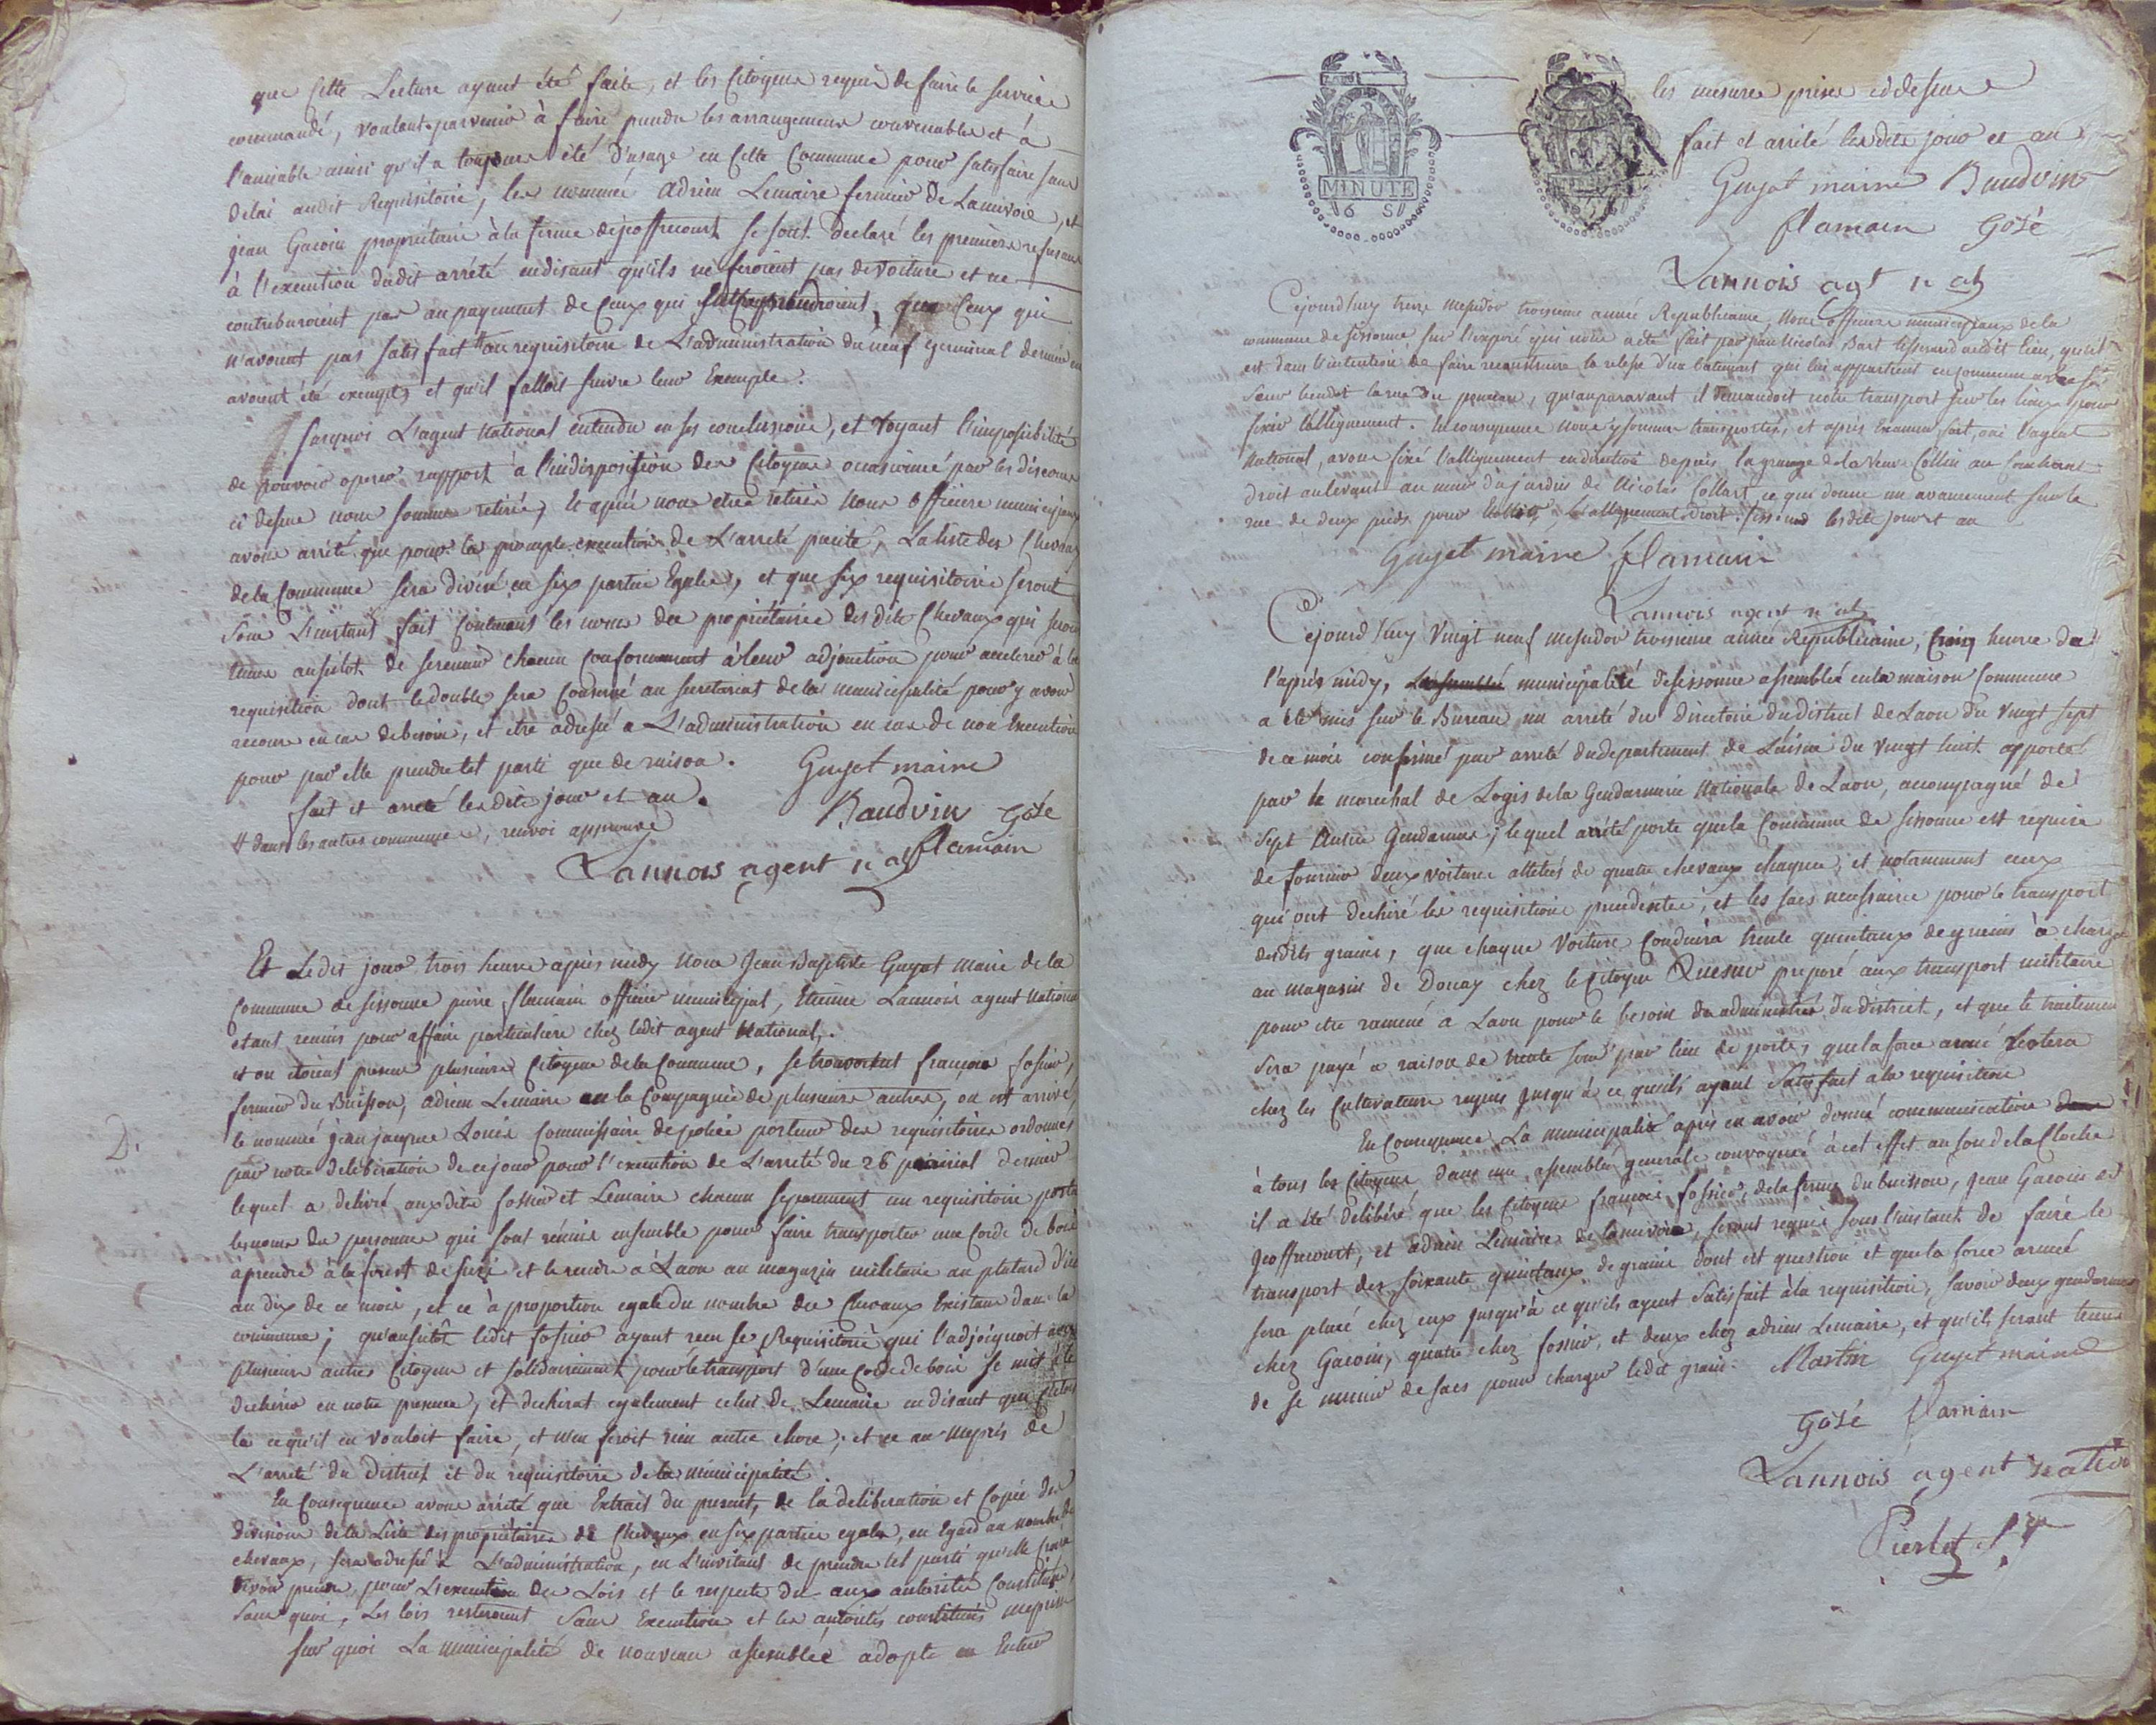 que Cette Lecture ayant été faite, et les Citoyens requis de faire le service
commandé, voulant parvenir à faire prendre les arrangemens convenables et à
l'amiable ainsi qu'il a toujours été d'usage en Cette Commune pour satisfaire sans
délai audit Requisitoire, les nommés adrien Lemaire fermier de Lamivoie, et
jean Gacoin propriétaire à la ferme dejeoffrecourt se sont declaré les premiers refusans
à l'execution dudit arrêté endisant qu'ils ne feroient pas de voiture et ne
contriburoient pas au payement de Ceux qui que Ceux qui
n'avoient pas satisfait # au requisitoire de L'administration du neuf germinal dernier en
avoient été exempts et qu'il falloit suivre leur Exemple.
sur quoi L'agent National entendu en ses conclusions, et Voyant l'impossibilité
de pouvoir operer rapport à l'indisposition des Citoyens occasionné par les discours
ci dessus nous sommes retirés, et après nous etre retirés Nous officiers municipaux
avons arrêté que pour la prompte execution de L'arrêté précité, La liste des Chevaux
de la Commune sera divisé en six parties Egales, et que six requisitoires seront
sous L'instant fait contenans les noms des propriétaires des dits Chevaux qui seront
tenus aussitôt de se reunir chacun Conformément à leur adjonction pour accelerer à la
requisition dont le double sera Conservé au secretariat de la municipalité pour y avoir
recours en cas de besoin, et etre adressé a L'administration en cas de non Execution
pour par elle prendre tel parti que de raison. Guyot maire
fait et arreté lesdits jour et an. Baudvin Gosé
# dans les autres communes, renvoi approuvé flamain
Lannois agent nal
Et Ledit jour trois heures après midy Nous Jean Baptiste Guyot maire de la
Commune de sissonne pierre flamain officier municipal, Etienne Lannois agent National
etant reunis pour affaire particuliere chez ledit agent National,
et ou étoient présens plusieurs Citoyens de la Commune, se trouvoient françois fossier,
fermier du Buisson, adrien Lemaire en la Compagnie de plusieurs autres, ou est arrivé,
le nommé jean jacques Louis Commissaire de police porteur des requisitoires ordonnés
2.
par notre deliberation de ce jour pour l'execution de L'arreté du 26 prairial dernier
lequel a delivré auxdits fossier et Lemaire chacun séparement un requisitoire porta
les noms des personnes qui sont réunis ensemble pour faire transporter une Corde de bois
à prendre à la forest de suzi et le rendre à Laon au magazin militaire au plutard d'ici
au dix de ce mois, et ce à proportion egale du nombre des Chevaux Existans dans la
commune; qu'ausitôt ledit fossier ayant recu le Requisitoire qui l'adjoignoit avec
plusieurs autres Citoyens et solidairement pour le transport d'une Corde de bois se mit à le
dechirer en notre presence, et dechirat egalement celui de Lemaire en disant que c'etoit
la ce qu'il en vouloit faire, et n'en feroit rien autre chose; et ce au mepris de
L'arreté du District et du requisitoire de la municipalité
En Consequence avons arrêté que Extrait du present, de la deliberation et Copie des
divisions de la Liste des propriétaires de Chevaux en six parties egales, eu Egard au nombre de
chevaux, sera adressé à L'administration, en L'invitant de prendre tel parti qu'elle croira
devoir prendre pour L'execution des Lois et le respects du aux autorités Constituées,
Sans quoi, Les lois resteroient sans Execution et les autorités constituées meprisées
sur quoi La municipalité de nouveau assemblée adopte en Entier
MINUTE
6 S
les mesures prises cÿdessus
fait et arrêté lesdits jour et an
Guyot maire Baudvin
flamain Gosé
Lannois agt nal
Cejourd'huy treize messidor troisieme année Republicaine, Nous officiers municipaux de la
commune de sissonne, sur l'exposé qui nous a été fait par jean Nicolas Bart tisserand audit lieu, qu'il
est dans l'intention de faire reconstruire un batiment qui lui appartient en commun avec sa
soeur qu'auparavant il demandoit notre transport sur les lieux pour
fixer l'allignement. En consequence nous y sommes transportés, et après Examen fait, ouï l'agent
National, avons fixé l'allignement en directive depuis la grange de la Veuve Collin au couchant
droit au levant au mur du jardin de Nicolas Collart ce qui donne un avancement sur la
rue de deux pieds pour L'allignement droit. fait lesdits jour et an
Guyot maire flamain
Lannois agent nal
Cejourd'huy Vingt neuf messidor troisieme année Republicaine, Cinq heures de
l'après midy, L'assemblée municipalité de sissonne assemblée en la maison Commune
a été mis sur le Bureau un arreté du directoire du district de Laon du Vingt sept
de ce mois confirmé par arreté du departement de L'aisne du vingt huit apporté
par le marechal de Logis de la Gendarmerie Nationale de Laon, accompagné de
sept Autres Gendarmes; lequel arrêté porte que la Commune de sissonne est requise
de fournir deux voitures attelées de quatre chevaux chaque, et notamment ceux
qui ont dechiré les requisitions precedentes, et les sacs necessaires pour le transport
desdits grains, que chaque Voiture Conduira trente quintaux de grains à charger
au magasin de Douay chez le Citoyen Quesner preposé aux transport militaire
pour etre ramené à Laon pour le besoin des administrés du district, et que le traitement
sera payé a raison de trente sous par lieu de poste, que la force armée restera
chez les Cultivateurs requis jusqu'à ce qu'ils ayent Satisfait à la requisition
En Consequence La municipalité après en avoir donné communication
à tous les Citoyens dans une assemblée generale convoquée à cet effet au son de la Cloche
il a été deliberé que les Citoyens françois fossier de la ferme du buisson, Jean Gacoin de
Jeoffrecourt, et adrien Lemaire de lamivoie, seront requis sous l'instant de faire le
transport des soixante quintaux de grains dont est question et que la force armée
sera placé chez eux jusqu'à ce qu'ils ayent Satisfait à la requisition, savoir deux gendarmes
chez Gacoin, quatre chez fossier, et deux chez adrien Lemaire, et qu'ils seront tenus
de se munir de sacs pour charger ledit grain. Martin Guyot maire
Gosé flamain
Lannois agent natio
Pierlot